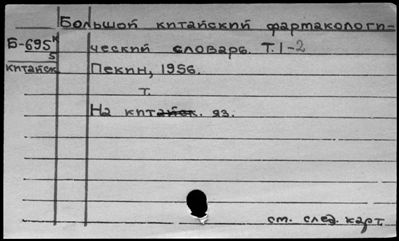 Большой китайский фармакологи-
Б-695 к
ческий словарь. Т. 1-2
5
китайск
Пекин, 1956.
т.
На китайск. яз.
см. след. карт.